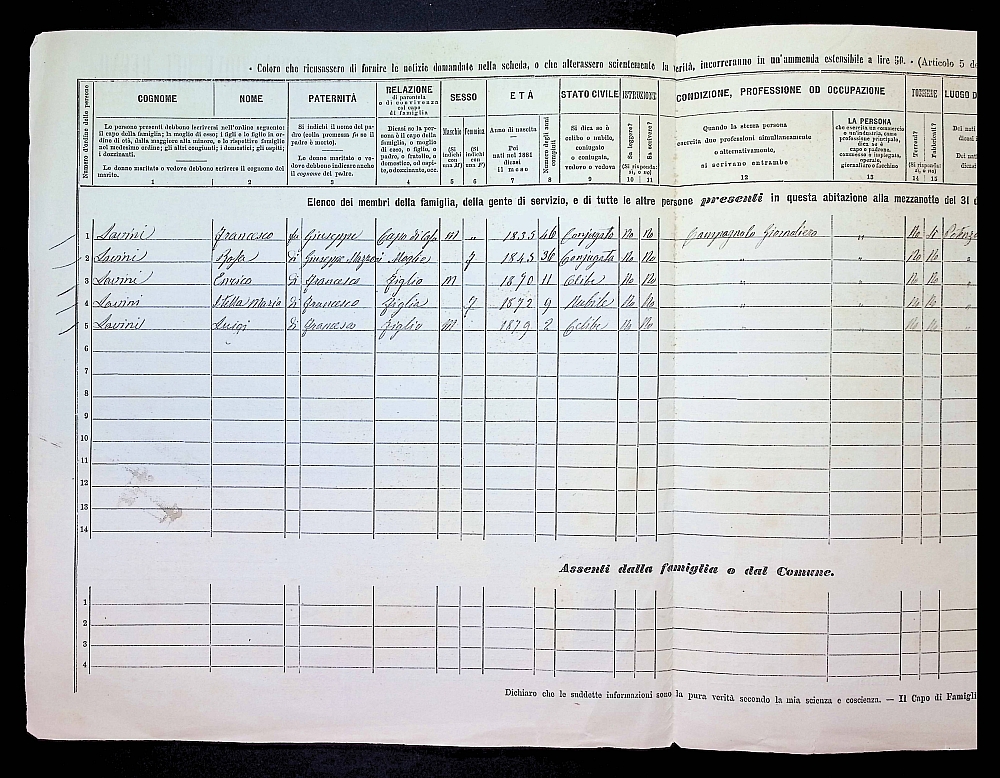 - Coloro che ricusassero di fornire le notizie domandate nella scheda, o che alterassero scientemente la verità, incorreranno in un'ammenda estensibile a lire 50. - (Articolo 5 de
Numero d'ordine delle persone
COGNOME
NOME
PATERNITÀ
RELAZIONE
di parentela
o di convivenza
col capo
di famiglia
SESSO
ETÀ
STATO CIVILE
ISTRUZIONE
CONDIZIONE, PROFESSIONE OD OCCUPAZIONE
POSSIEDE
LUOGO D
Le persone presenti debbono iscriversi nell'ordine seguente:
il capo della famiglia; la moglie di esso; i figli e le figlie in or-
dine di età, dalla maggiore alla minore, e le rispettive famiglie
nel medesimo ordine; gli altri congiunti; i domestici; gli ospiti;
i dozzinanti.
Le donne maritate o vedove debbono scrivere il cognome del
marito.
Si indichi il nome del pa-
dre (colla premessa fu se il
padre è morto).
Le donne maritate o ve-
dove debbono indicare anche
il cognome del padre.
Dicasi se la per-
sona è il capo della
famiglia, o moglie
di esso, o figlio, o
padre, o fratello, o
domestico, od ospi-
te, o dozzinante, ecc.
Maschio
(Si
indichi
con
una M)
Femmina
(Si
indichi
con
una F)
Anno di nascita
Pei
nati nel 1881
dicasi
il mese
Numero degli anni
compiuti
Si dica se è
celibe o nubile,
coniugato
o coniugata,
vedovo o vedova
Sa leggere?
Sa scrivere?
(Si risponda
sì, o no)
Quando la stessa persona
esercita due professioni simultaneamente
o alternativamente,
si scrivano entrambe
LA PERSONA
che esercita un commercio
o un'industria, come
professione principale,
dica se è
capo o padrone,
commesso o impiegato,
operaio,
giornaliero o facchino
Terreni?
Fabbricati?
(Si risponda
sì, o no)
Dei nati
dicasi i
Dei nati
dicasi
1 2 3 4 5 6 7 8 9 10 11 12 13 14 15
Elenco dei membri della famiglia, della gente di servizio, e di tutte le altre persone presenti in questa abitazione alla mezzanotte del 31 d
1 Lavini Francesco fu Giuseppe Capo di Casa M „ 1835 46 Conjugato No No Campagnolo Giornaliero „ No No
2 Lavini Rosa di Giuseppe Moglie F 1845 36 Conjugata No No „ „ No No „
3 Lavini Enrico di Francesco Figlio M 1870 11 Celibe No No „ „ No No „
4 Lavini Stella Maria di Francesco Figlia F 1872 9 Nubile No No „ „ No No „
5 Lavini Luigi di Francesco Figlio M 1879 2 Celibe No No „ „ No No „
6
7
8
9
10
11
12
13
14
Assenti dalla famiglia o dal Comune.
1
2
3
4
Dichiaro che le suddette informazioni sono la pura verità secondo la mia scienza e coscienza. — Il Capo di Famigli